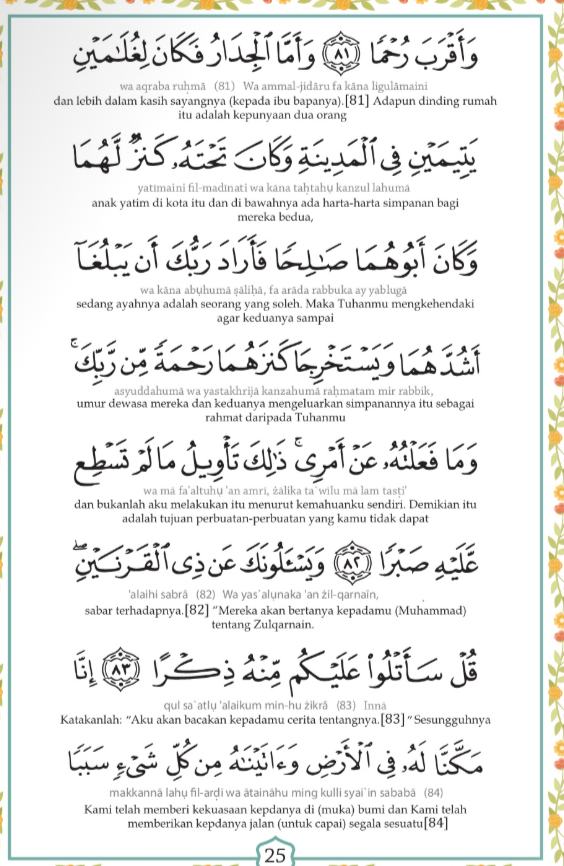 وَأَقْرَبَ رُحْمًا ۝٨١ وَأَمَّا الْجِدَارُ فَكَانَ لِغُلَـٰمَيْنِ
wa aqraba ruḥmā (81) Wa ammal-jidāru fa kāna ligulāmaini
dan lebih dalam kasih sayangnya (kepada ibu bapanya).[81] Adapun dinding rumah
itu adalah kepunyaan dua orang
يَتِيمَيْنِ فِي الْمَدِينَةِ وَكَانَ تَحْتَهُۥ كَنزٌ لَّهُمَا
yatīmaini fil-madīnati wa kāna taḥtahụ kanzul lahumā
anak yatim di kota itu dan di bawahnya ada harta-harta simpanan bagi
mereka bedua,
وَكَانَ أَبُوهُمَا صَـٰلِحًا فَأَرَادَ رَبُّكَ أَن يَبْلُغَآ
wa kāna abụhumā ṣāliḥā, fa arāda rabbuka ay yablugā
sedang ayahnya adalah seorang yang soleh. Maka Tuhanmu mengkehendaki
agar keduanya sampai
أَشُدَّهُمَا وَيَسْتَخْرِجَا كَنزَهُمَا رَحْمَةً مِّن رَّبِّكَ ۚ
asyuddahumā wa yastakhrijā kanzahumā raḥmatam mir rabbik,
umur dewasa mereka dan keduanya mengeluarkan simpanannya itu sebagai
rahmat daripada Tuhanmu
وَمَا فَعَلْتُهُۥ عَنْ أَمْرِى ۚ ذَٰلِكَ تَأْوِيلُ مَا لَمْ تَسْطِع
wa mā fa'altuhụ 'an amrī, żālika ta`wīlu mā lam tasṭi'
dan bukanlah aku melakukan itu menurut kemahuanku sendiri. Demikian itu
adalah tujuan perbuatan-perbuatan yang kamu tidak dapat
عَّلَيْهِ صَبْرًا ۝٨٢ وَيَسْـَٔلُونَكَ عَن ذِى الْقَرْنَيْنِ ۖ
'alaihi sabrā (82) Wa yas`alụnaka 'an żil-qarnaīn,
sabar terhadapnya.[82] "Mereka akan bertanya kepadamu (Muhammad)
tentang Zulqarnain.
قُلْ سَأَتْلُوا۟ عَلَيْكُم مِّنْهُ ذِكْرًا ۝٨٣ إِنَّا
qul sa`atlụ 'alaikum min-hu żikrā (83) Innā
Katakanlah: "Aku akan bacakan kepadamu cerita tentangnya.[83] "Sesungguhnya
مَكَّنَّا لَهُۥ فِى الْأَرْضِ وَءَاتَيْنَـٰهُ مِن كُلِّ شَىْءٍ سَبَبًا
makkannā lahụ fil-arḍi wa ātaināhu ming kulli syai`in sababā (84)
Kami telah memberi kekuasaan kepdanya di (muka) bumi dan Kami telah
memberikan kepdanya jalan (untuk capai) segala sesuatu[84]
25